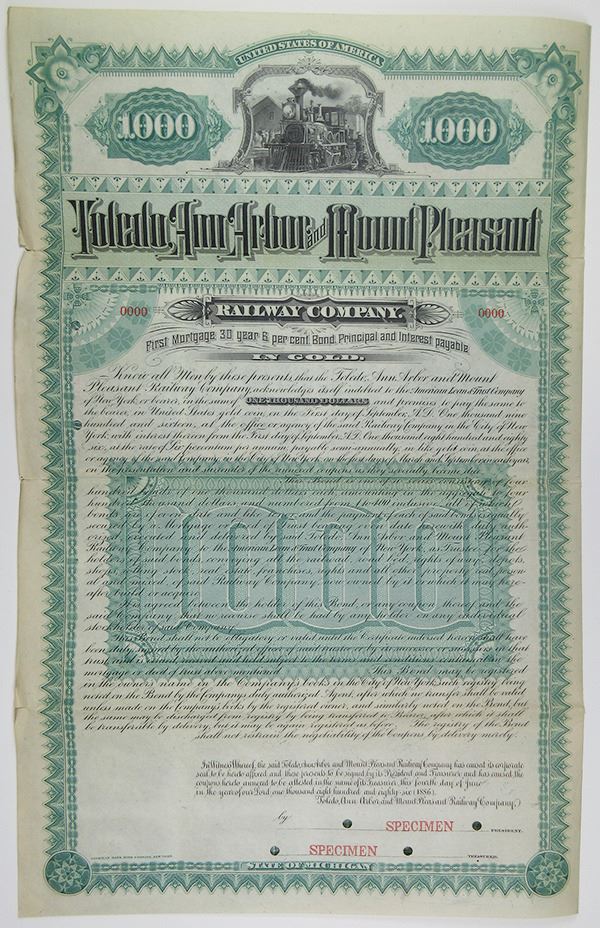 UNITED STATES OF AMERICA
1000 1000
Toledo, Ann Arbor and Mount Pleasant
0000 RAILWAY COMPANY. 0000
First Mortgage 30 year 6 per cent Bond. Principal and Interest payable
IN GOLD.
Know all Men by these presents, that the Toledo, Ann Arbor and Mount
Pleasant Railway Company acknowledges itself indebted to the American Loan & Trust Company
of New York, or bearer, in the sum of ONE THOUSAND DOLLARS and promises to pay the same to
the bearer, in United States gold coin, on the First day of September, A.D. One thousand nine
hundred and sixteen, at the office or agency of the said Railway Company in the City of New
York, with interest thereon from the First day of September, A.D. One thousand eight hundred and eighty
six, at the rate of Six per centum per annum, payable semi-annually, in like gold coin, at the office
or agency of the said Company in the City of New York, on the first days of March and September in each year,
on the presentation and surrender of the annexed coupons as they severally become due.
This Bond is one of a series consisting of four
hundred Bonds of one thousand dollars each, amounting in the aggregate to four
hundred thousand dollars and numbered from 1 to 400 inclusive, all of which
bonds are of even date and like tenor, and the payment of each of said bonds is equally
secured by a Mortgage or deed of trust bearing even date herewith, duly auth-
orized, executed and delivered by said Toledo, Ann Arbor and Mount Pleasant
Railway Company to the American Loan & Trust Company of New York, as Trustee for the
holders of said bonds, conveying all the railroad, road bed, rights of way, depots,
shops, rolling stock, real estate, franchises, rights and all other property real, person-
al and mixed, of said Railway Company, now owned by it or which it may here-
after build or acquire.
It is agreed between the holder of this Bond, or any coupon thereof and the
said Company that no recourse shall be had by any holder on any individual
stockholder of said Company.
This Bond shall not be obligatory or valid until the Certificate indorsed hereon shall have
been duly signed by the authorized officer of said trustee or by its successor or successors in that
trust, and is issued and held subject to the terms and conditions contained in the
mortgage or deed of trust above mentioned. This Bond may be registered
in the owner's name in the Company's books in the City of New York, said registry being
noted on the Bond by the Company's duly authorized Agent, after which no transfer shall be valid
unless made on the Company's books by the registered owner, and similarly noted on the Bond, but
the same may be discharged from registry by being transferred to Bearer, after which it shall
be transferable by delivery, but it may be again registered as before. The registry of the Bond
shall not restrain the negotiability of the Coupons by delivery merely.
In Witness Whereof, the said Toledo, Ann Arbor and Mount Pleasant Railway Company has caused its corporate
seal to be hereto affixed and these presents to be signed by its President and Treasurer and has caused the
coupons hereto annexed to be attested in the name of its Treasurer, this fourth day of June
in the year of our Lord one thousand eight hundred and eighty-six (1886).
Toledo, Ann Arbor and Mount Pleasant Railway Company,
by SPECIMEN PRESIDENT.
SPECIMEN TREASURER.
AMERICAN BANK NOTE COMPANY, NEW YORK.
STATE OF MICHIGAN.